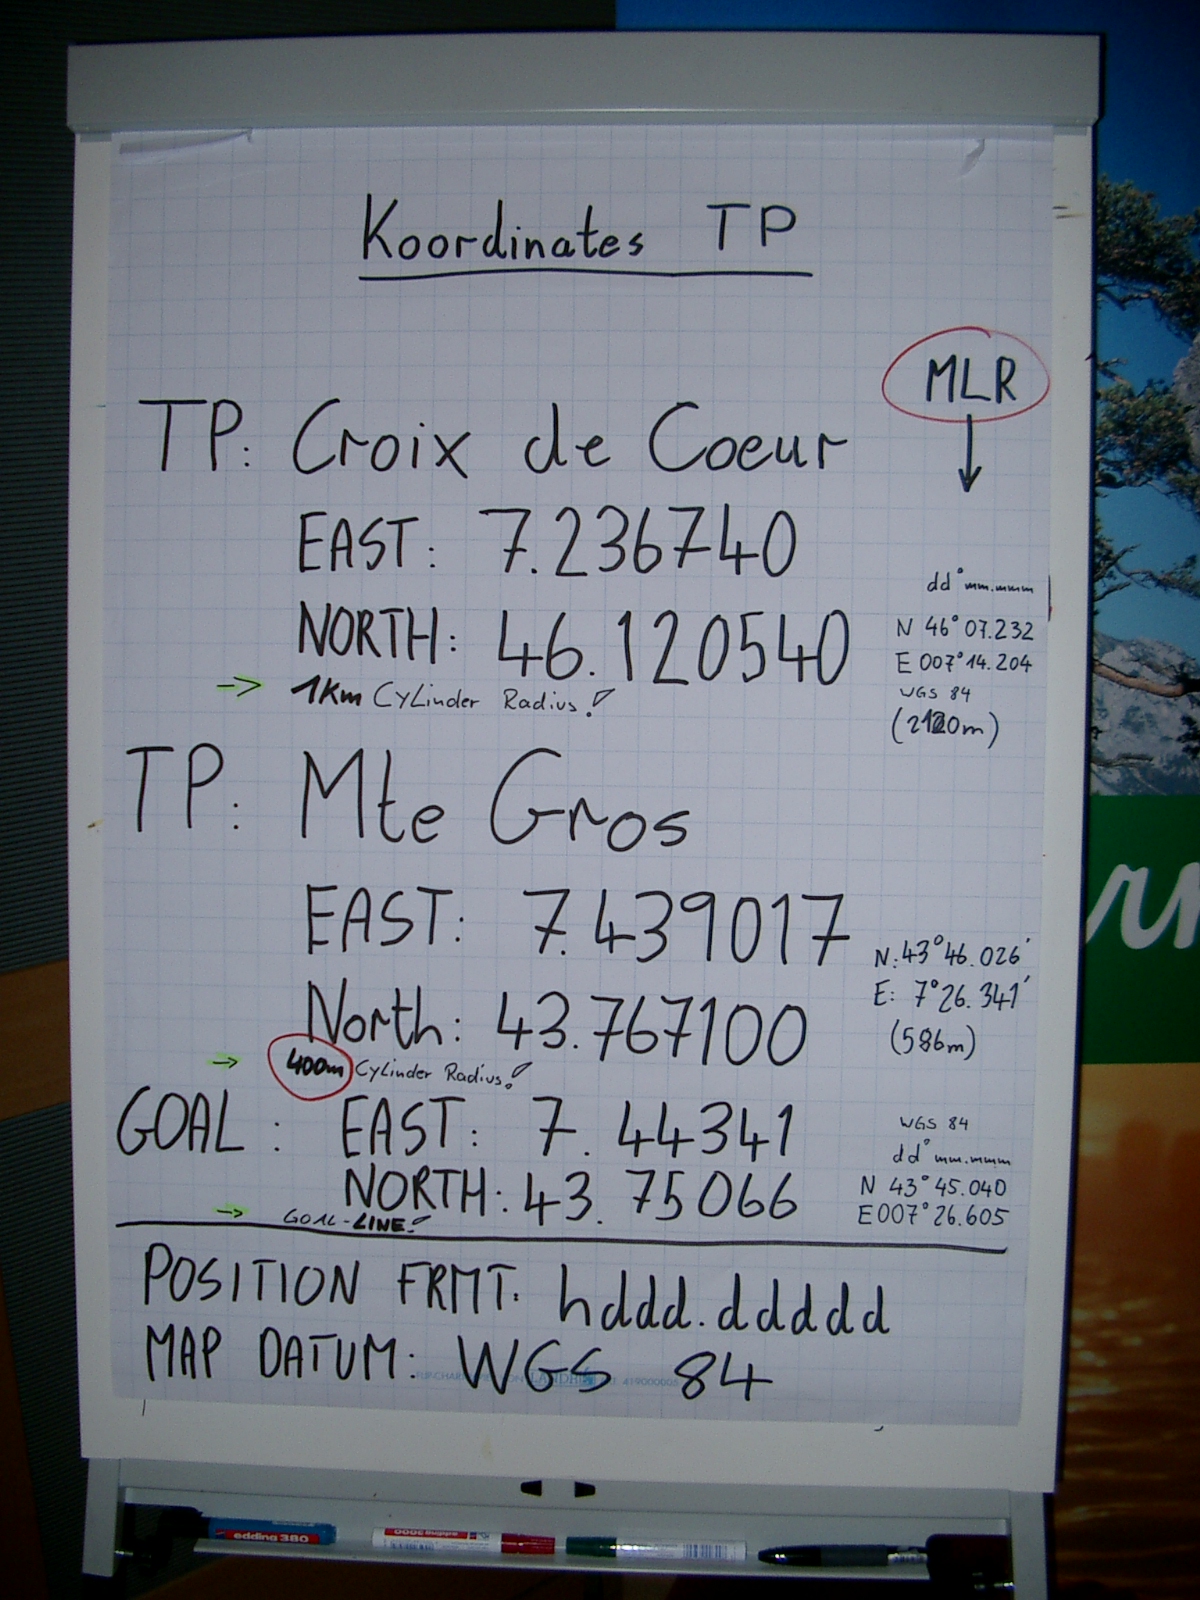 Koordinates TP
MLR
TP: Croix de Coeur
EAST: 7.236740
dd°mm.mmm
NORTH: 46.120540
N 46°07.232
E 007°14.204
WGS 84
(2120m)
→ 1Km Cylinder Radius!
TP: Mte Gros
EAST: 7.439017
N: 43°46.026'
E: 7°26.341'
(586m)
North: 43.767100
→ 400m Cylinder Radius!
GOAL: EAST: 7.44341
WGS 84
dd°mm.mmm
NORTH: 43.75066
N 43°45.040
E 007°26.605
→ GOAL-LINE!
POSITION FRMT: hddd.ddddd
MAP DATUM: WGS 84
LANDRÉ
edding 380
edding 3000